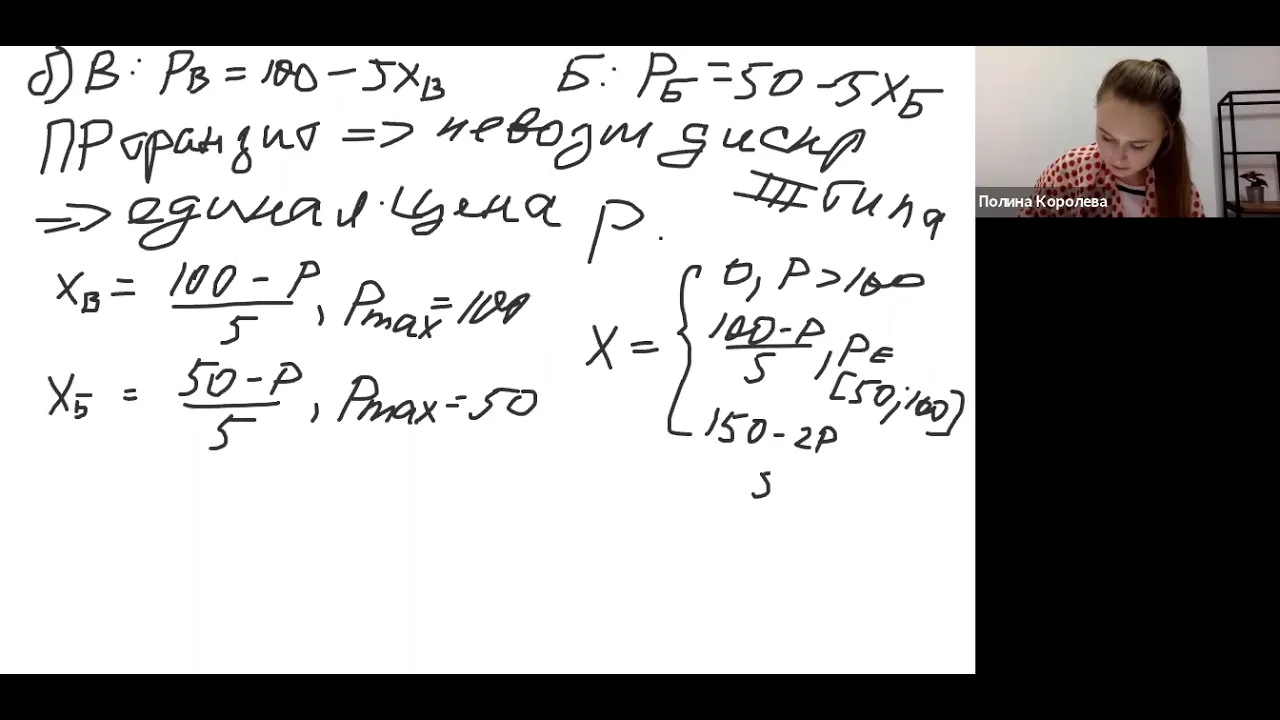 б) В: P_В = 100 - 5x_В
Б: P_Б = 50 - 5x_Б
ПР транзит => невозм дискр
III типа
=> единая цена P.
x_В = (100 - P)/5, P_max = 100
x_Б = (50 - P)/5, P_max = 50
X = {
0, P > 100
(100 - P)/5, P ∈
[50; 100]
150 - 2P
5
Полина Королева